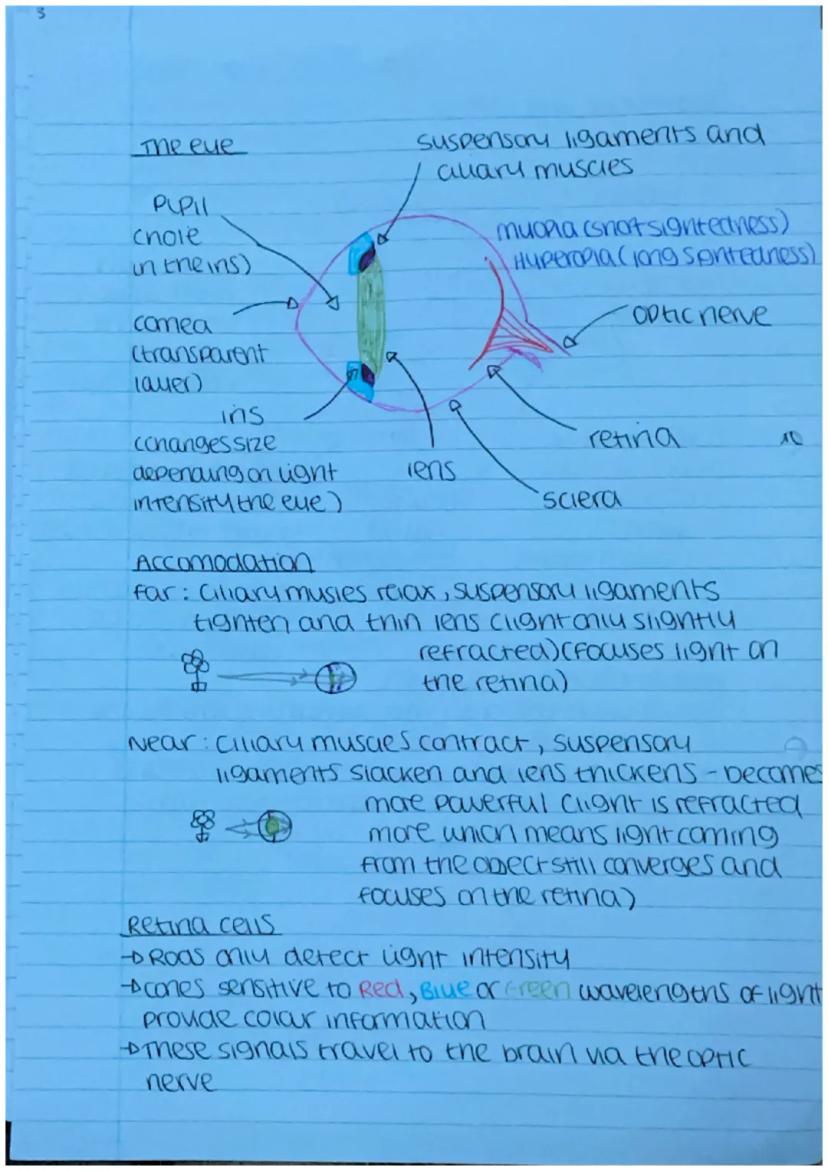 3
The eye
suspensory ligaments and
ciliary muscles
Pupil
(hole
in the iris)
myopia (short sightedness)
Hyperopia (long sightedness)
cornea
(transparent
layer)
optic nerve
iris
(changes size
depending on light
intensity the eye)
lens
retina
sclera
Accomodation
Far: Ciliary musles relax, suspensory ligaments
tighten and thin lens (light only slightly
refracted) (focuses light on
the retina)
Near: Ciliary muscles contract, suspensory
ligaments slacken and lens thickens - becomes
more powerful (light is refracted
more which means light coming
from the object still converges and
focuses on the retina)
Retina cells
→ Rods only detect light intensity
→ cones sensitive to Red, Blue or Green wavelengths of light
provide colar information
→ These signals travel to the brain via the optic
nerve